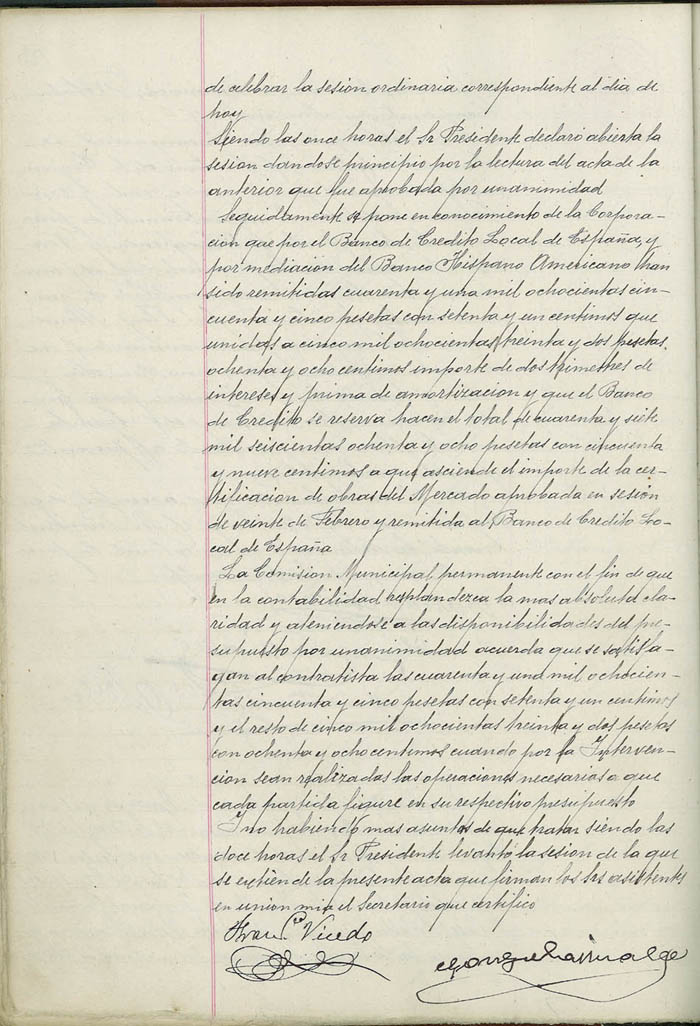 de celebrar la sesion ordinaria correspondiente al dia de
hoy
Siendo las once horas el Sr Presidente declaró abierta la
sesion dandose principio por la lectura del acta de la
anterior que fue aprobada por unanimidad
Seguidamente se pone en conocimiento de la Corpora-
cion que por el Banco de Credito Local de España, y
por mediación del Banco Hispano Americano han
sido remitidas cuarenta y una mil ochocientas cin-
cuenta y cinco pesetas con setenta y un centimos que
unidas a cinco mil ochocientas treinta y dos pesetas
ochenta y ocho centimos importe de dos trimestres de
intereses y prima de amortizacion y que el Banco
de Credito se reserva hacen el total de cuarenta y siete
mil seiscientas ochenta y ocho pesetas con cincuenta
y nueve centimos a que asciende el importe de la cer-
tificacion de obras del Mercado aprobada en sesión
de veinte de Febrero y remitida al Banco de Credito Lo-
cal de España
La Comision Municipal permanente con el fin de que
en la contabilidad resplandezca la mas absoluta cla-
ridad y ateniendose a las disponibilidades del pre-
supuesto por unanimidad acuerda que se satisfa-
gan al contratista las cuarenta y una mil ochocien-
tas cincuenta y cinco pesetas con setenta y un centimos
y el resto de cinco mil ochocientas treinta y dos pesetas
con ochenta y ocho centimos cuando por la Interven-
cion sean realizadas las operaciones necesarias a que
cada partida figure en su respectivo presupuesto
I no habiendo mas asuntos de que tratar siendo las
doce horas el Sr Presidente levantó la sesion de la que
se extiende la presente acta que firman los Srs asistentes
en union mia el Secretario que certifico
Fran.co Vicedo